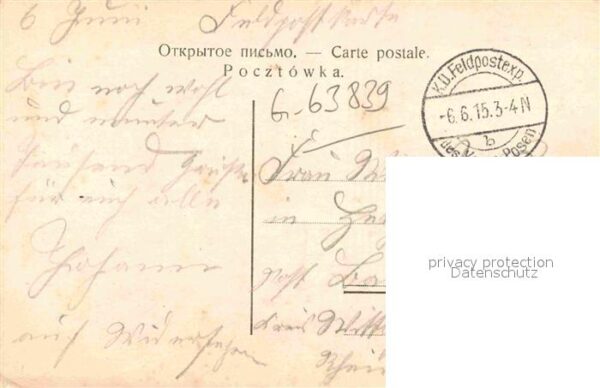 6 Juni Feldpostkarte
Открытое письмо. — Carte postale.
Pocztówka.
K.D.Feldpostexp.
-6.6.15.3-4N
b
Posen
G-63839
Bin noch wohl
und munter
Tausend Grüße
für euch alle
Johann
auf Wiedersehen
Frau
in
Post
Kreis
privacy protection
Datenschutz